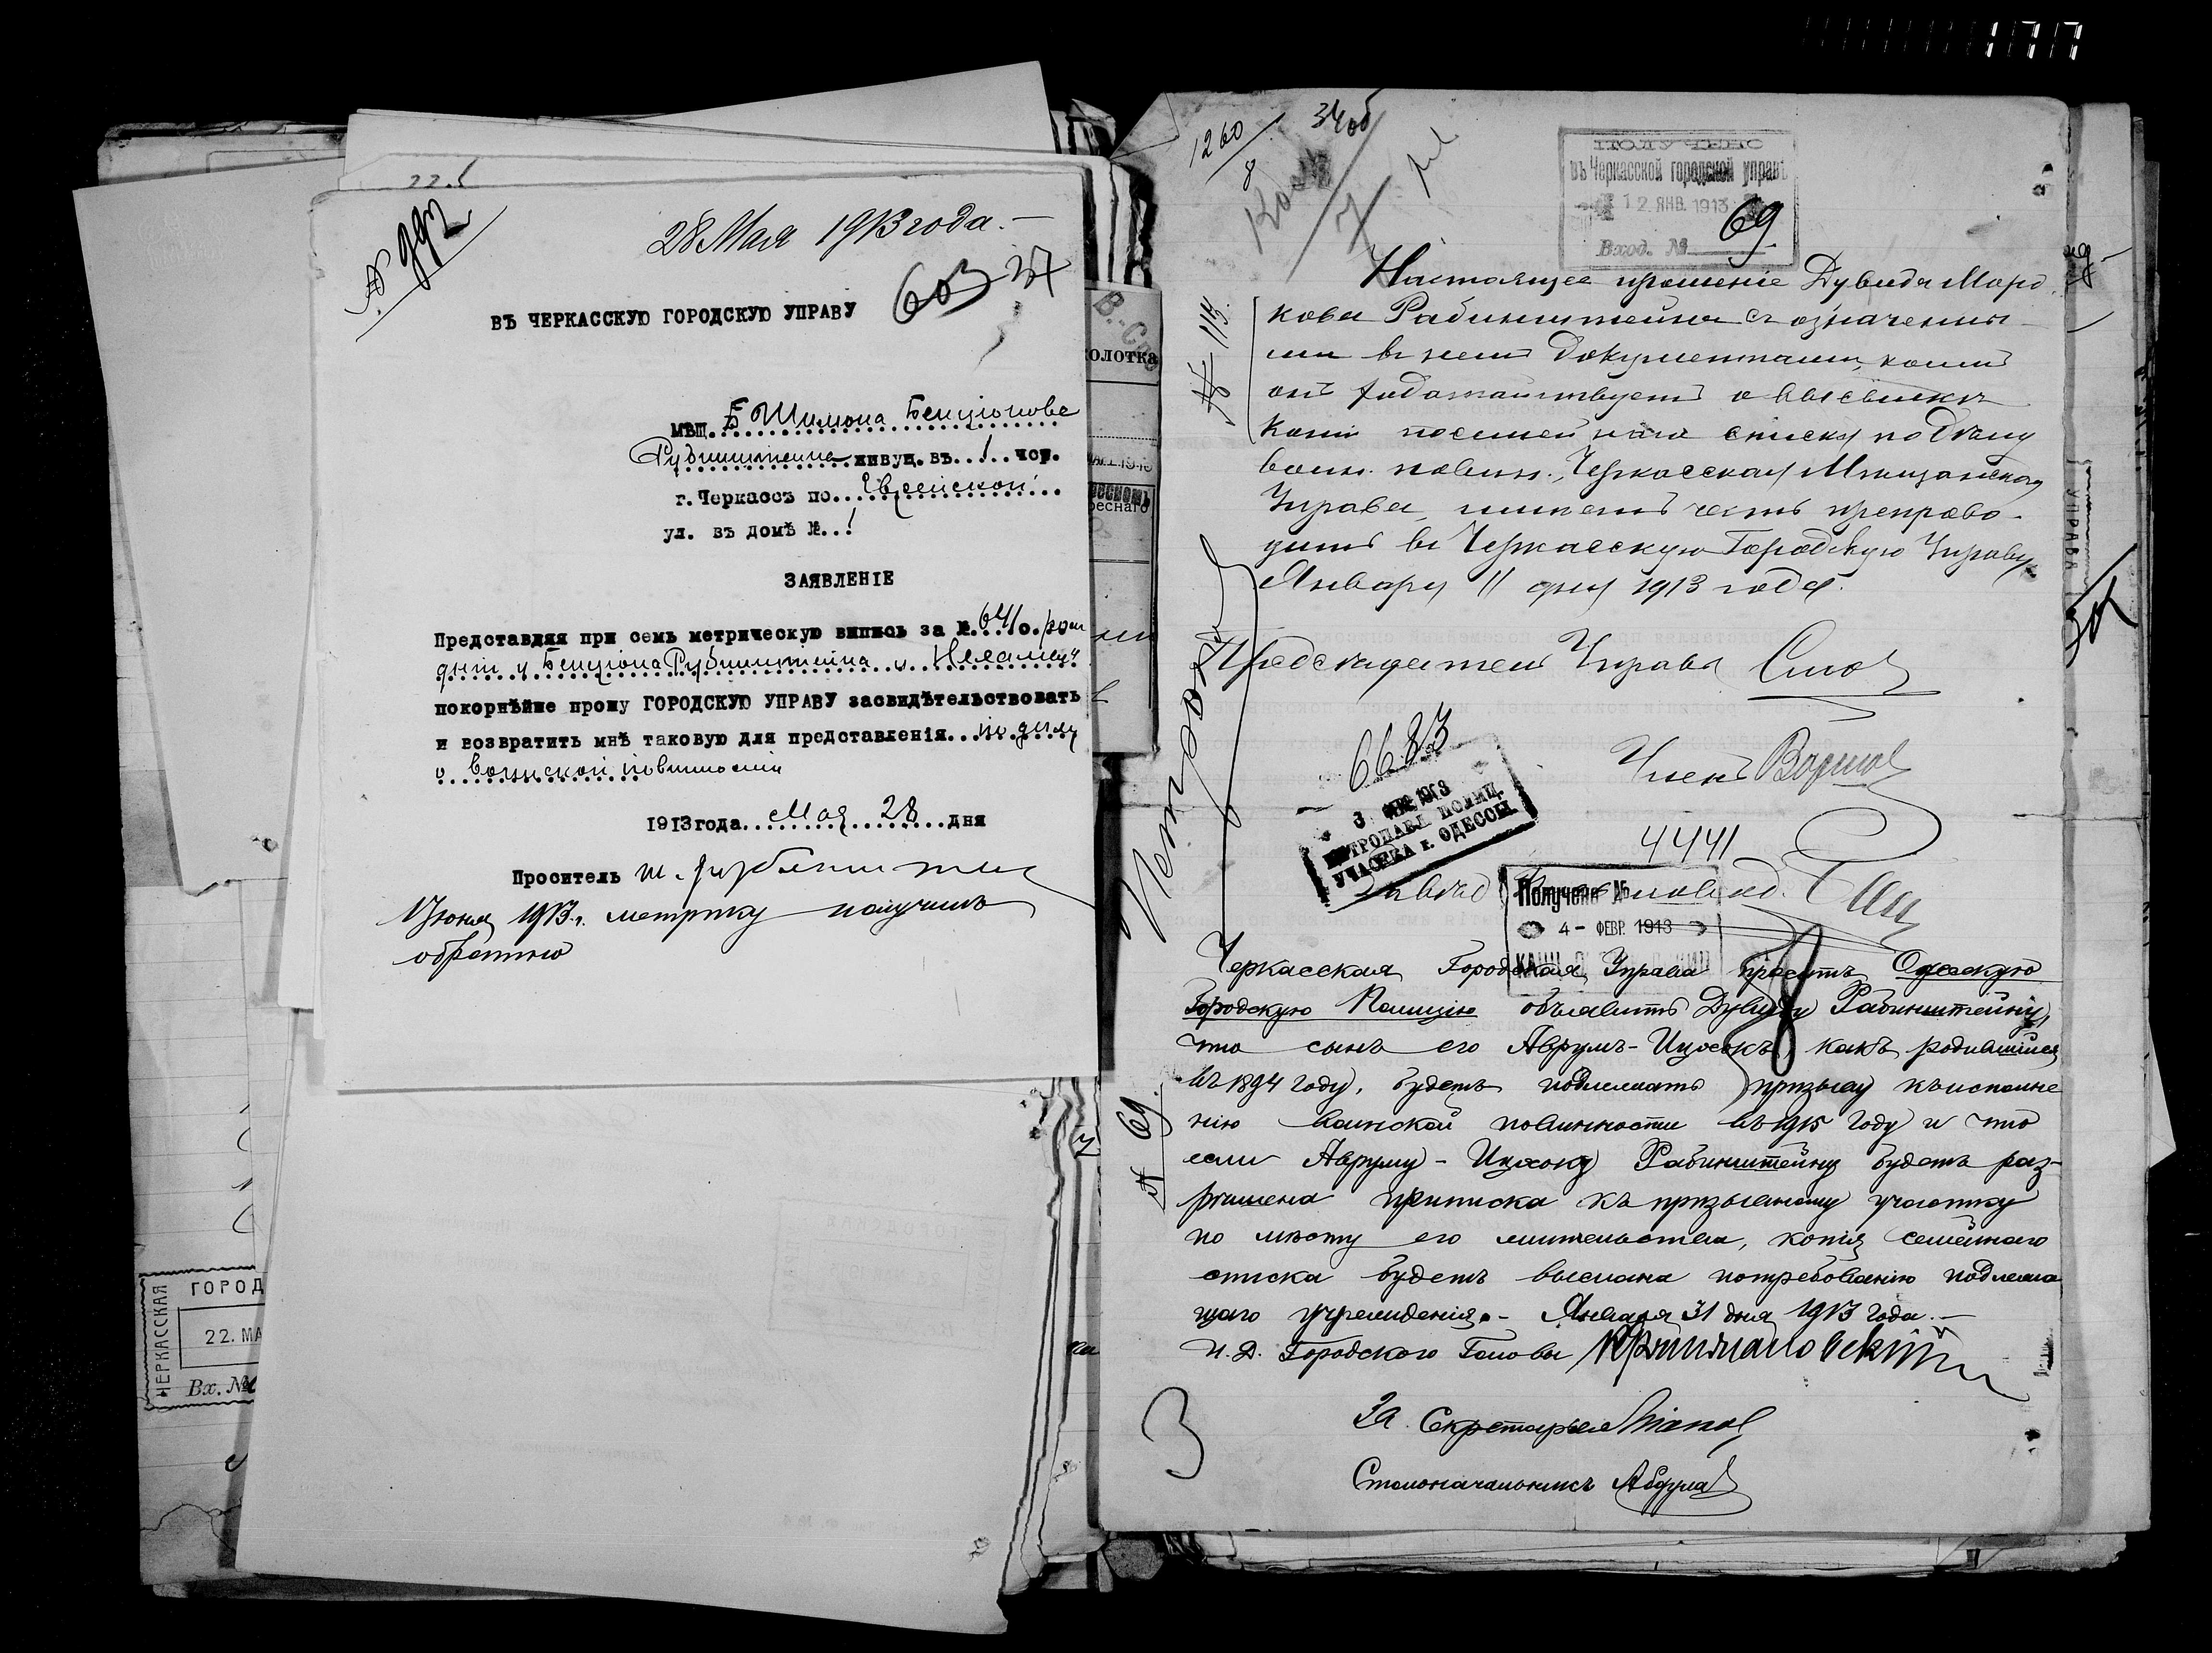 177
№ 992
28 Мая 1913 года.—
ВЪ ЧЕРКАССКУЮ ГОРОДСКУЮ УПРАВУ
603
37
МѢЩ. Шимона Бенціонова
Рубинштейна живущ. въ 1 чст.
г. Черкассъ по Еврейской
ул. въ домѣ № 1
ЗАЯВЛЕНІЕ
Представляя при семъ метрическую выпись за № 641 о рож
деніи у Бенціона Рубинштейна
покорнѣйше прошу ГОРОДСКУЮ УПРАВУ засвидѣтельствовать
и возвратить мнѣ таковую для представленія по дѣлу
о воинской повинности
1913 года Мая 28 дня
Проситель
Іюня 1913 г. метрику получилъ
обратно
ЧЕРКАССКАЯ
ГОРОД
22. МА
Вх. №
олотка
1260/8
34об
ПОЛУЧЕНО
въ Черкасской городской управѣ
12 ЯНВ. 1913
Вход. № 69
№ 113
Настоящее прошеніе Дувида Морд
кова Рабинштейна съ означенны
ми въ немъ документами, коимъ
онъ ходатайствуетъ о высылкѣ
копіи посемейнаго списка по дѣлу
воин. повин., Черкасская Мѣщанская
Управа, имѣетъ честь препрово-
дить въ Черкасскую Городскую Управу
Января 11 дня 1913 года.
Предсѣдатель Управы
Членъ
6683
3 ФЕВ. 1913
ПЕТРОПАВЛ. ПОЛИЦ.
УЧАСТКА г. ОДЕССЫ
4441
Получено №
4 - ФЕВР. 1913
№ 69
Черкасская Городская Управа проситъ Одесскую
Городскую Полицію объявить Дувиду Рабинштейну,
что сынъ его Аврумъ-Ицхокъ, какъ родившійся
въ 1894 году, будетъ подлежать призыву къ исполне
нію воинской повинности въ 1915 году и что
если Авруму-Ицхоку Рабинштейну будетъ раз-
рѣшена приписка къ призывному участку
по мѣсту его жительства, копія семейнаго
списка будетъ выслана по требованію подлежа
щаго учрежденія.- Января 31 дня 1913 года.—
И. Д. Городского Головы
За Секретаря
Столоначальникъ
3
УПРАВА